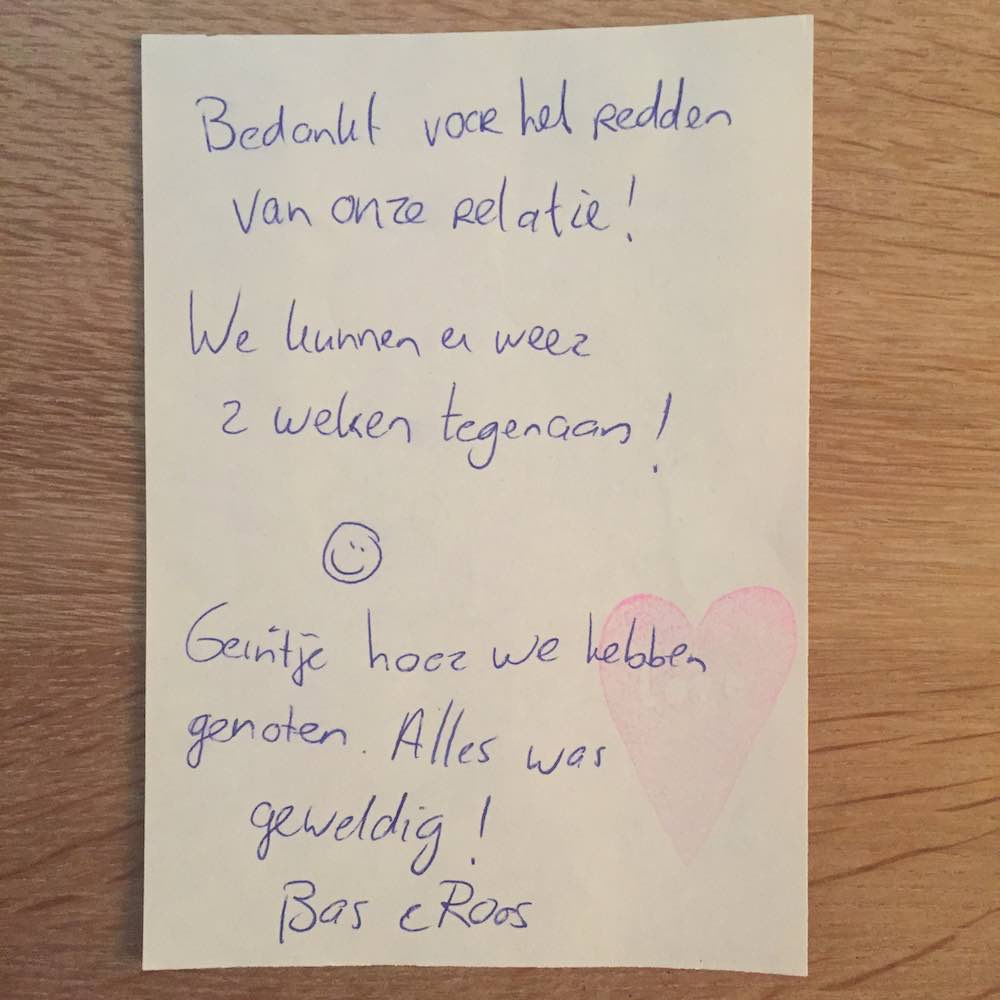 Bedankt voor het redden
van onze relatie!
We kunnen er weer
2 weken tegenaan!
Geintje hoor we hebben
genoten. Alles was
geweldig!
Bas & Roos